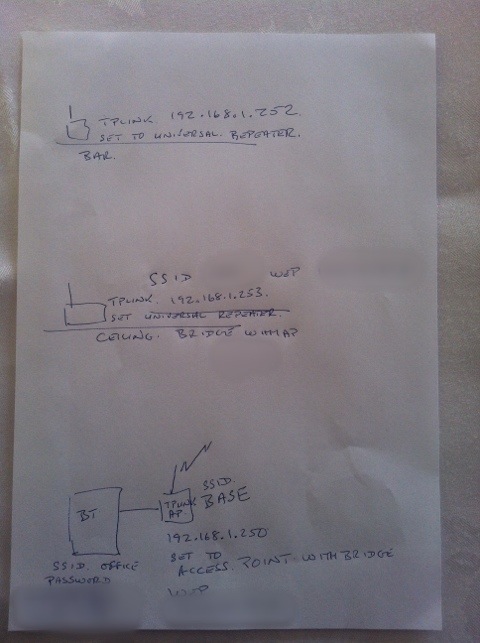 TPLINK. 192.168.1.252.
SET TO UNIVERSAL. REPEATER.
BAR.
SSID WEP
TPLINK. 192.168.1.253.
SET UNIVERSAL REPEATER.
CEILING. BRIDGE WITH AP
SSID.
BASE
BT
TPLINK
AP.
192.168.1.250
SSID. OFFICE
PASSWORD
SET TO
ACCESS. POINT-WITH BRIDGE